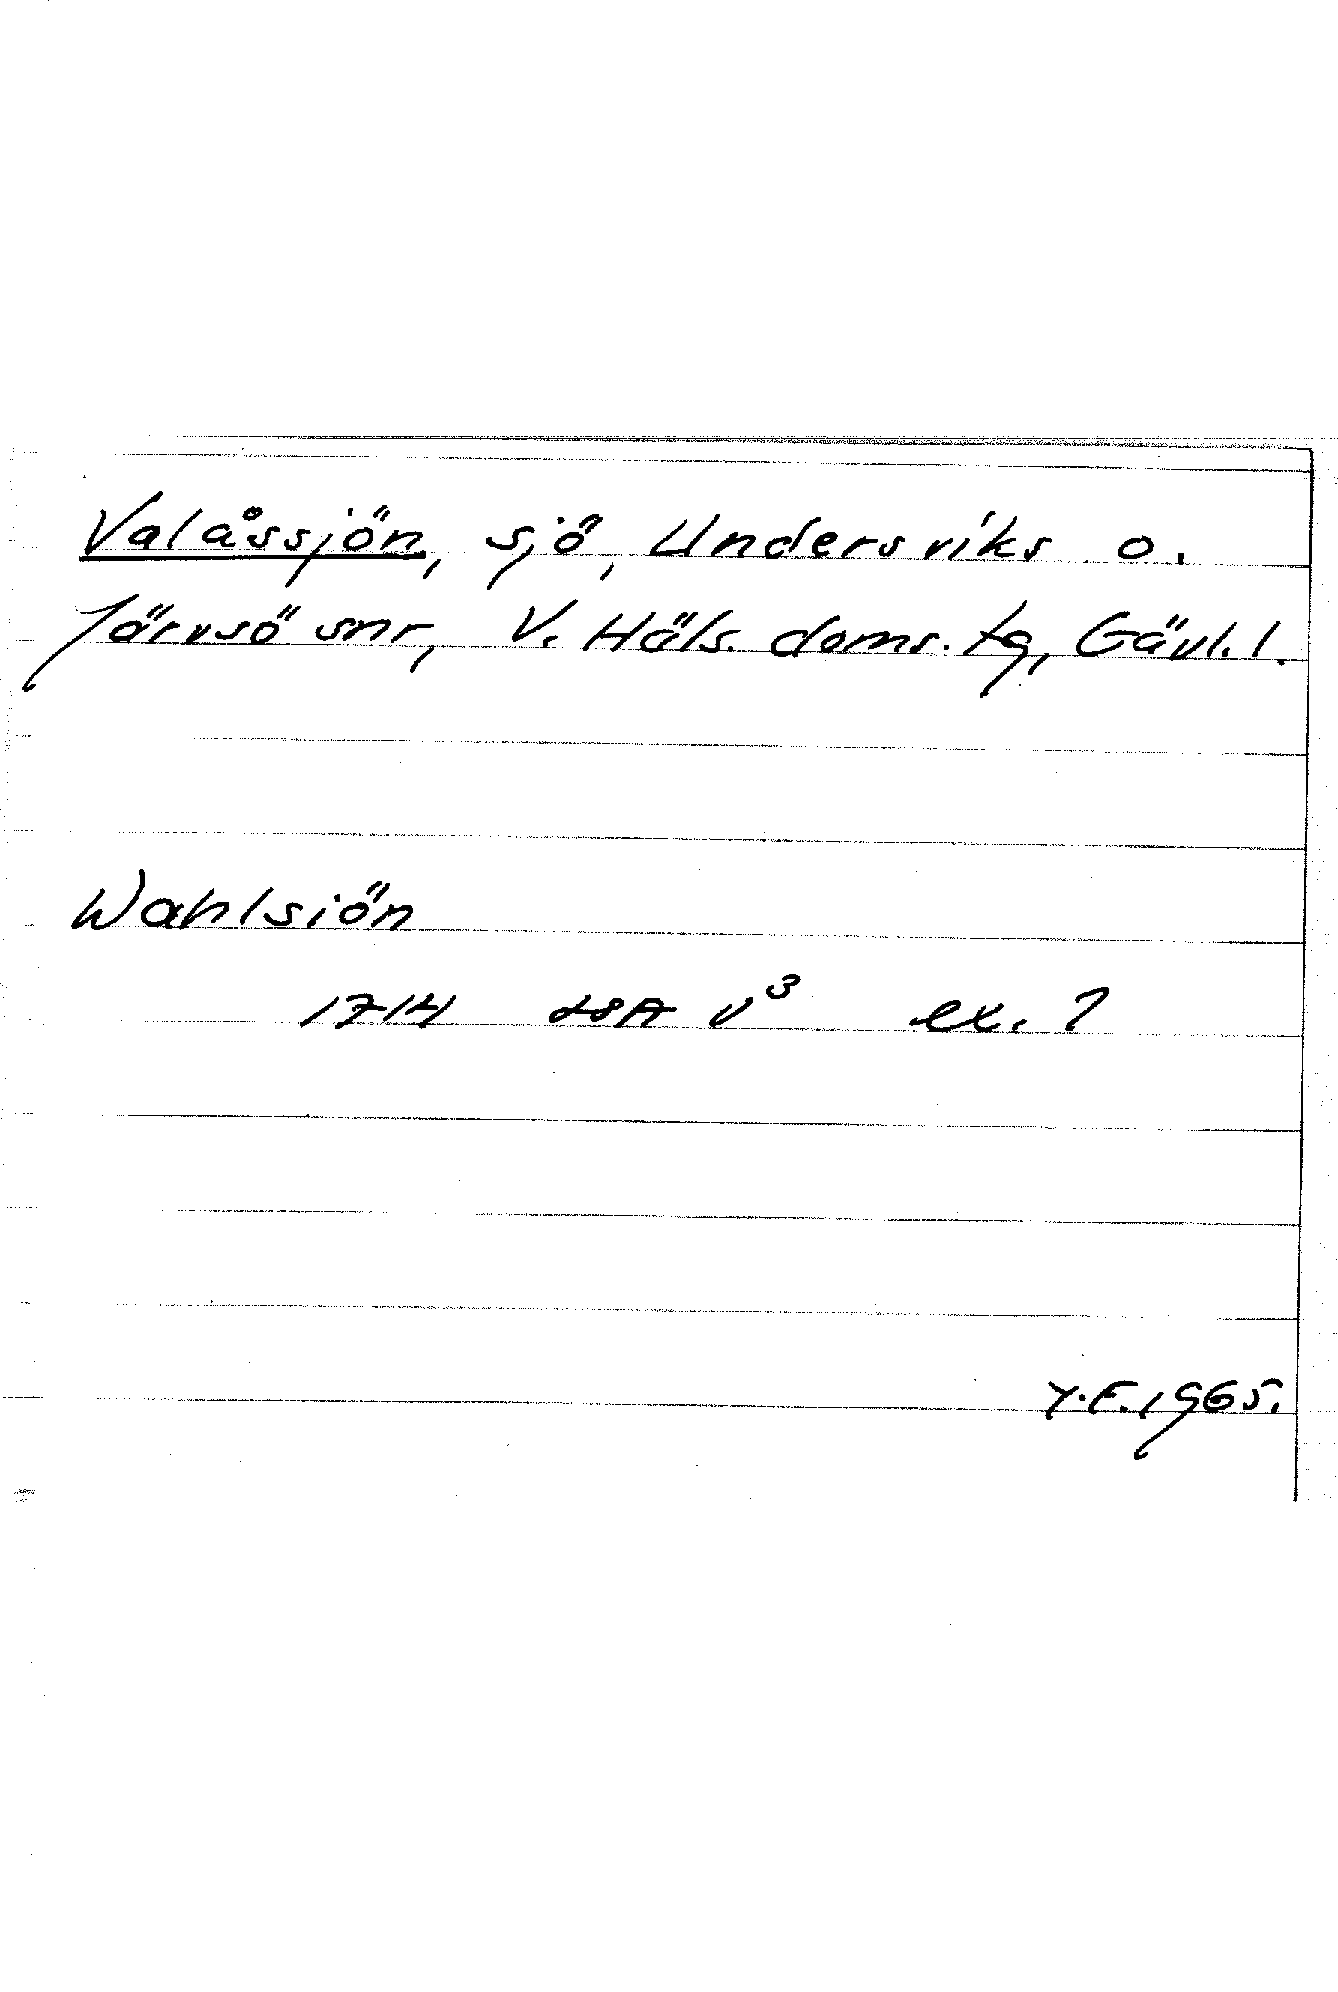 Valåssjön, sjö, Undersviks o.
Järvsö snr, V. Häls. doms. tg, Gävl. l.
Wahlsiön
1714 LSA V³ ex. 7
Y.E. 1965.